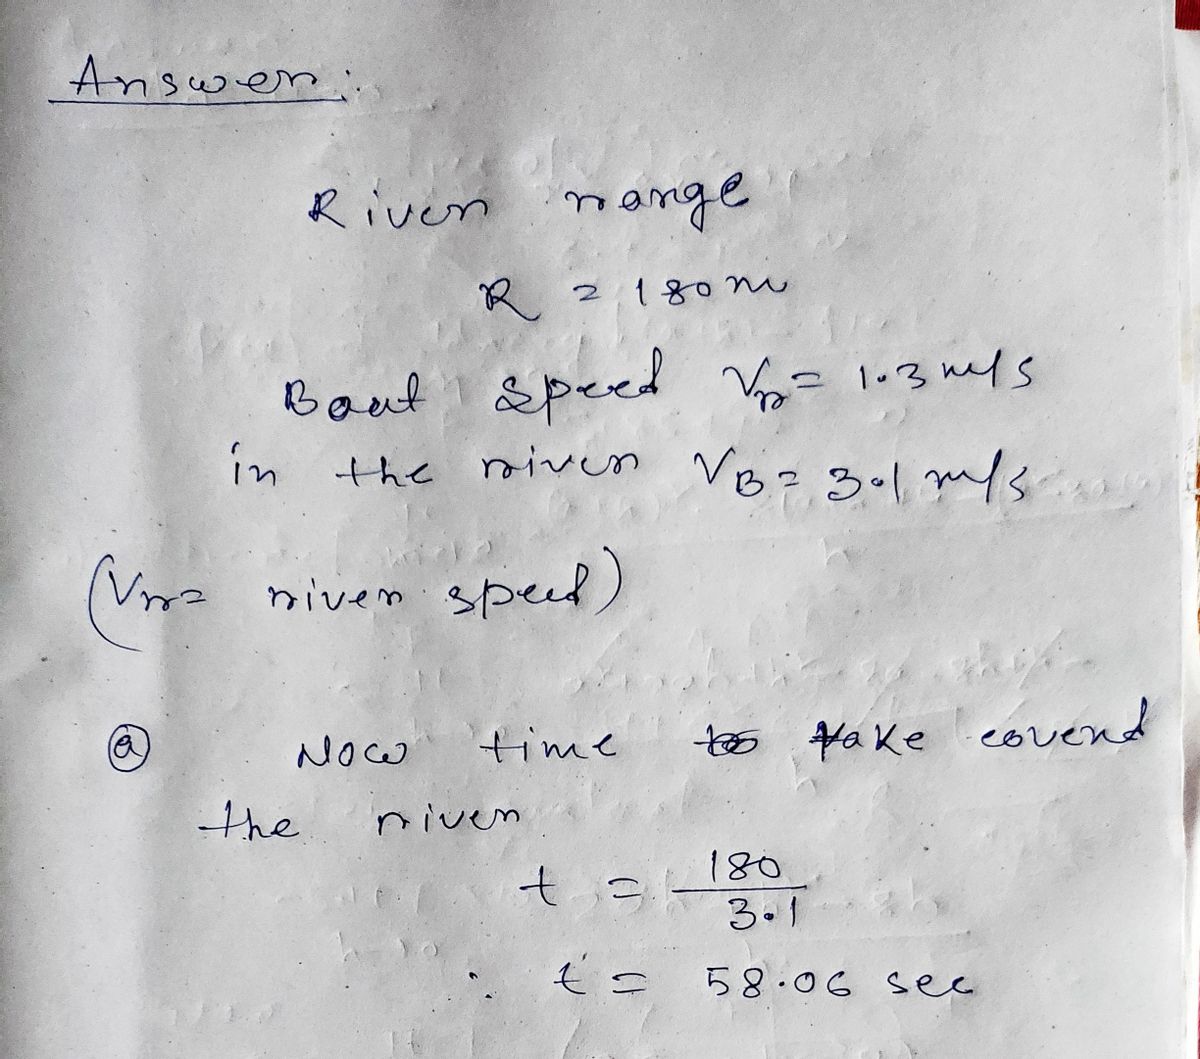 Answer:
River range
R = 180 m
Boat speed Vr = 1.3 m/s
in the river VB = 3.1 m/s
(Vr = river speed)
(a) Now time take coverd
the river
t = 180/3.1
∴ t = 58.06 sec